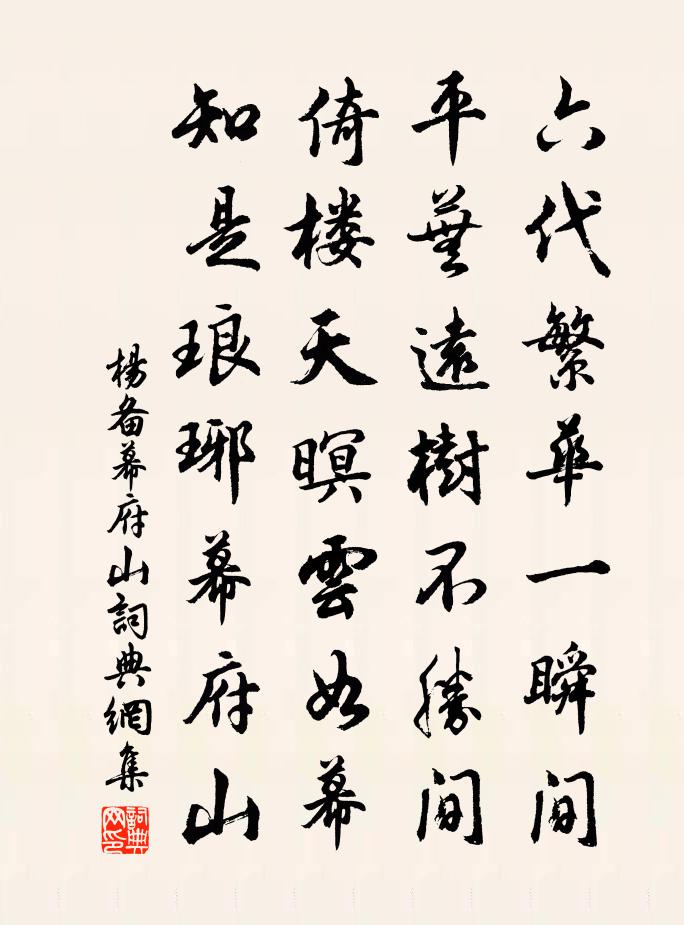 六代繁華一瞬間
平蕪遠樹不勝間
倚楼天暝雲如幕
知是琅琊幕府山
楊备幕府山詞典網集
詞典
网印